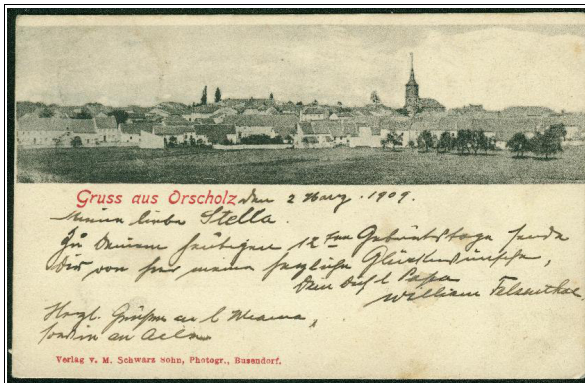 Gruss aus Orscholz den 2 März. 1909.
Meine liebe Stella.
Zu Deinem heutigen 12ten Geburtstage sende
Dir von hier meine herzliche Glückwünsche,
Dein Papa
William
Herzl. Grüßen an l Mama,
an
Verlag v. M. Schwarz Sohn, Photogr., Busendorf.